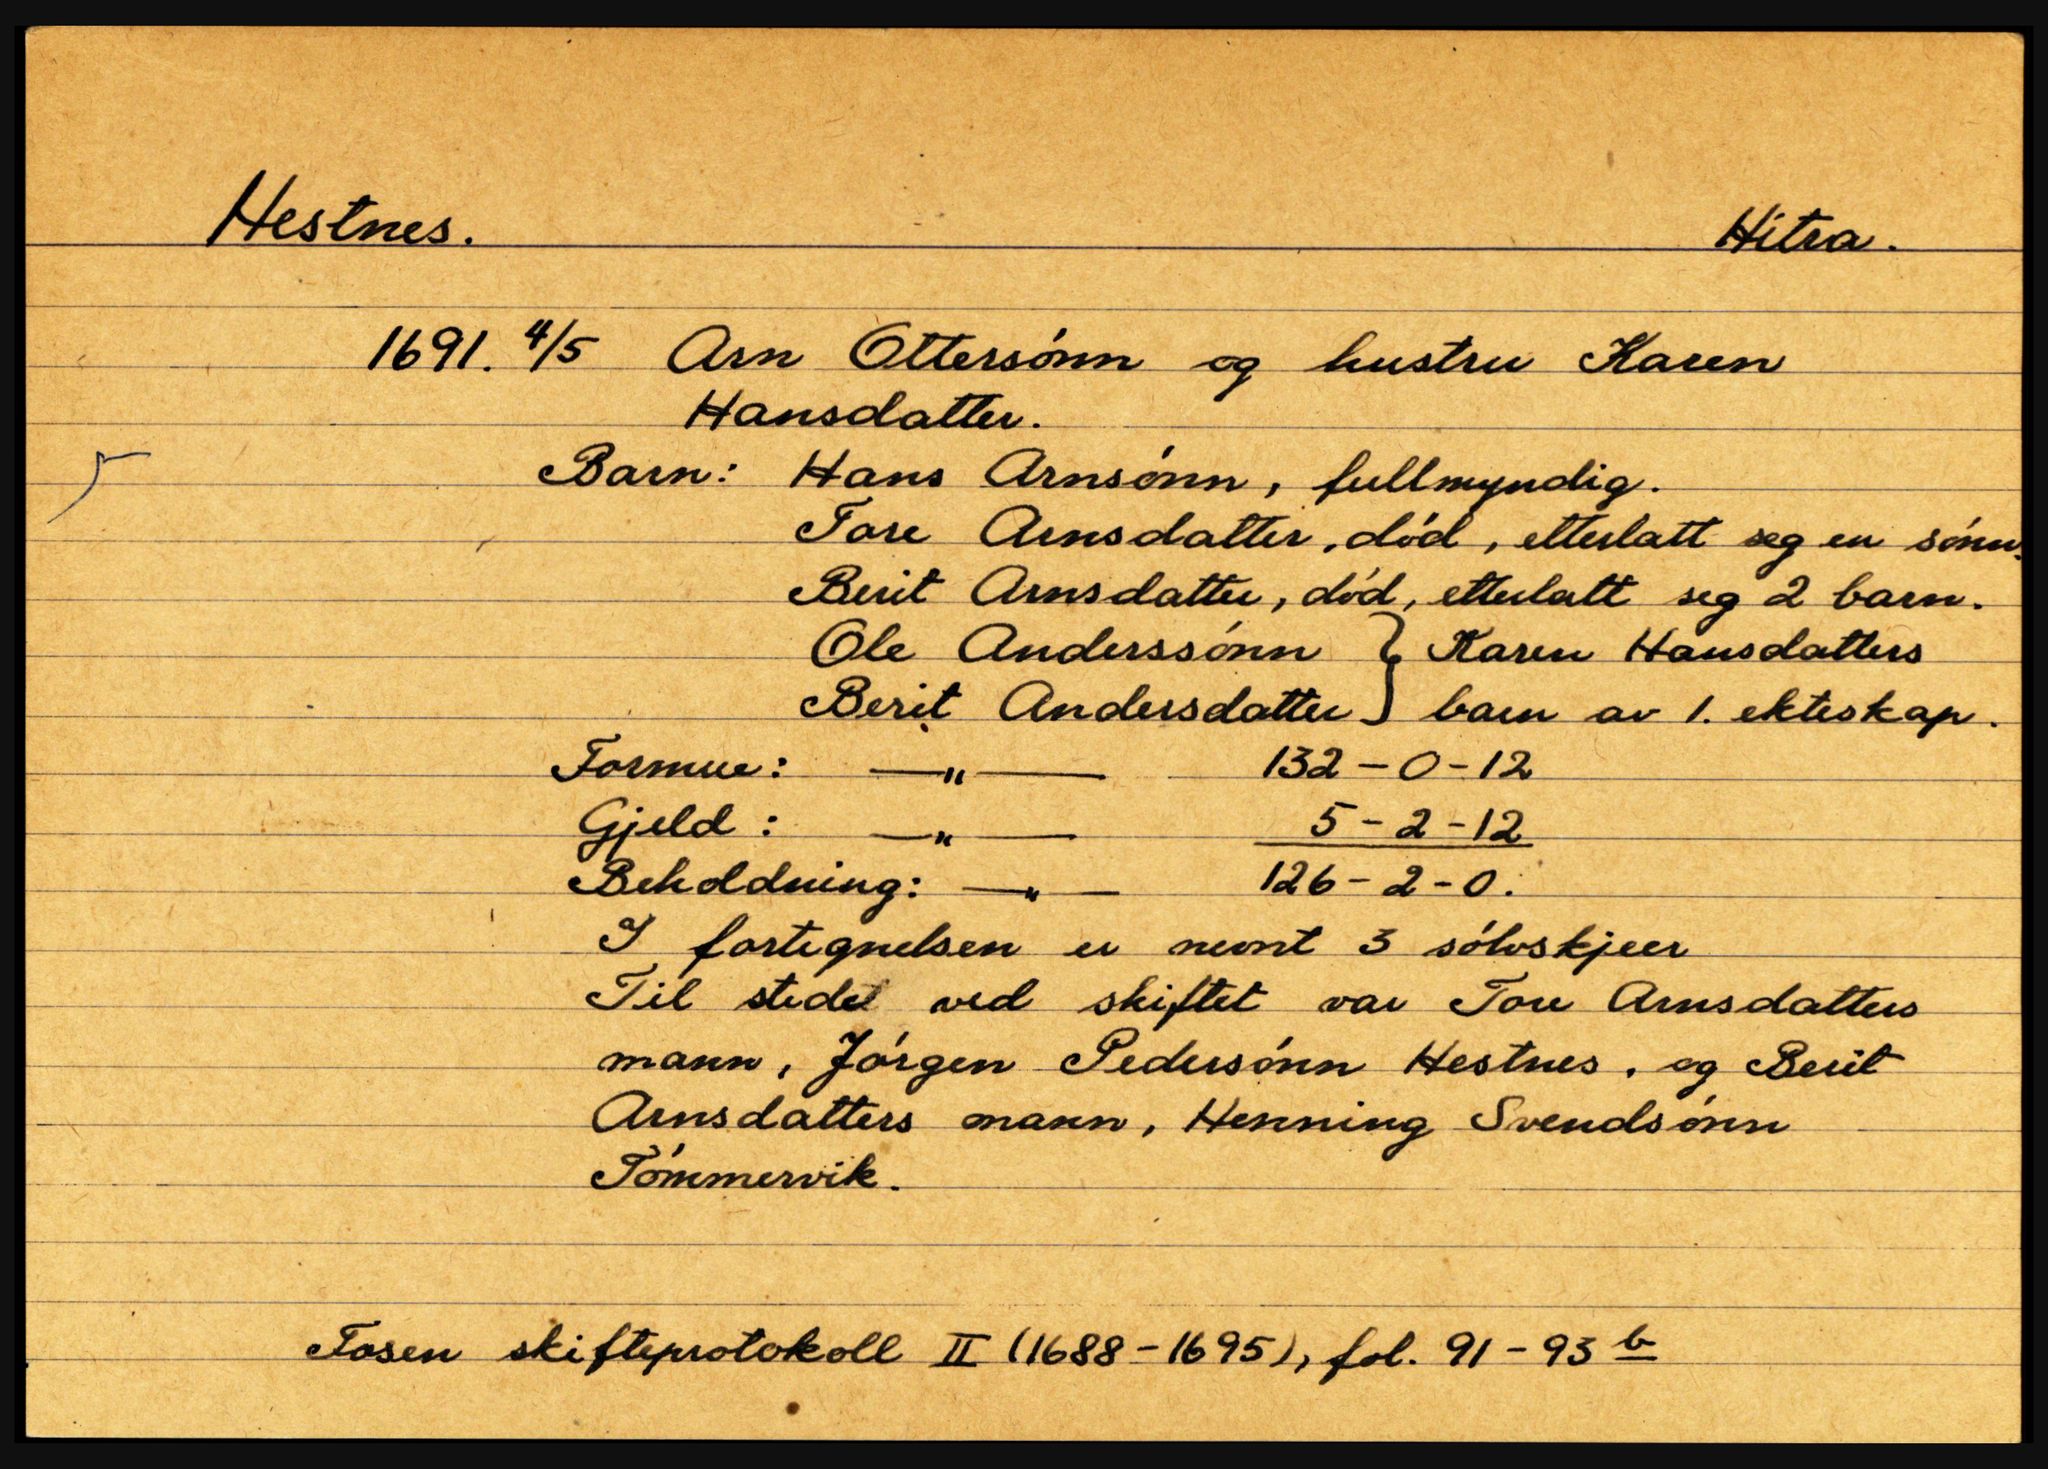 Hestnes. Hitra.
1691. 4/5 Arn Ottersónn og hustru Karen
Hansdatter.
Barn: Hans Arnsónn, fullmyndig.
Tore Arnsdatter, död, etterlatt seg en sónn.
Berit Arnsdatter, död, etterlatt seg 2 barn.
Ole Anderssónn } Karen Hansdatters
Berit Andersdatter } barn av 1. ekteskap.
Formue: —"— 132-0-12
Gjeld: —"— 5-2-12
Beholdning: —"— 126-2-0.
I fortegnelsen er nevnt 3 sólvskjeer
Til stede ved skiftet var Tore Arnsdatters
mann, Jórgen Pedersónn Hestnes, og Berit
Arnsdatters mann, Henning Svendsónn
Tómmervik.
Fosen skifteprotokoll II (1688-1695), fol. 91-93 b